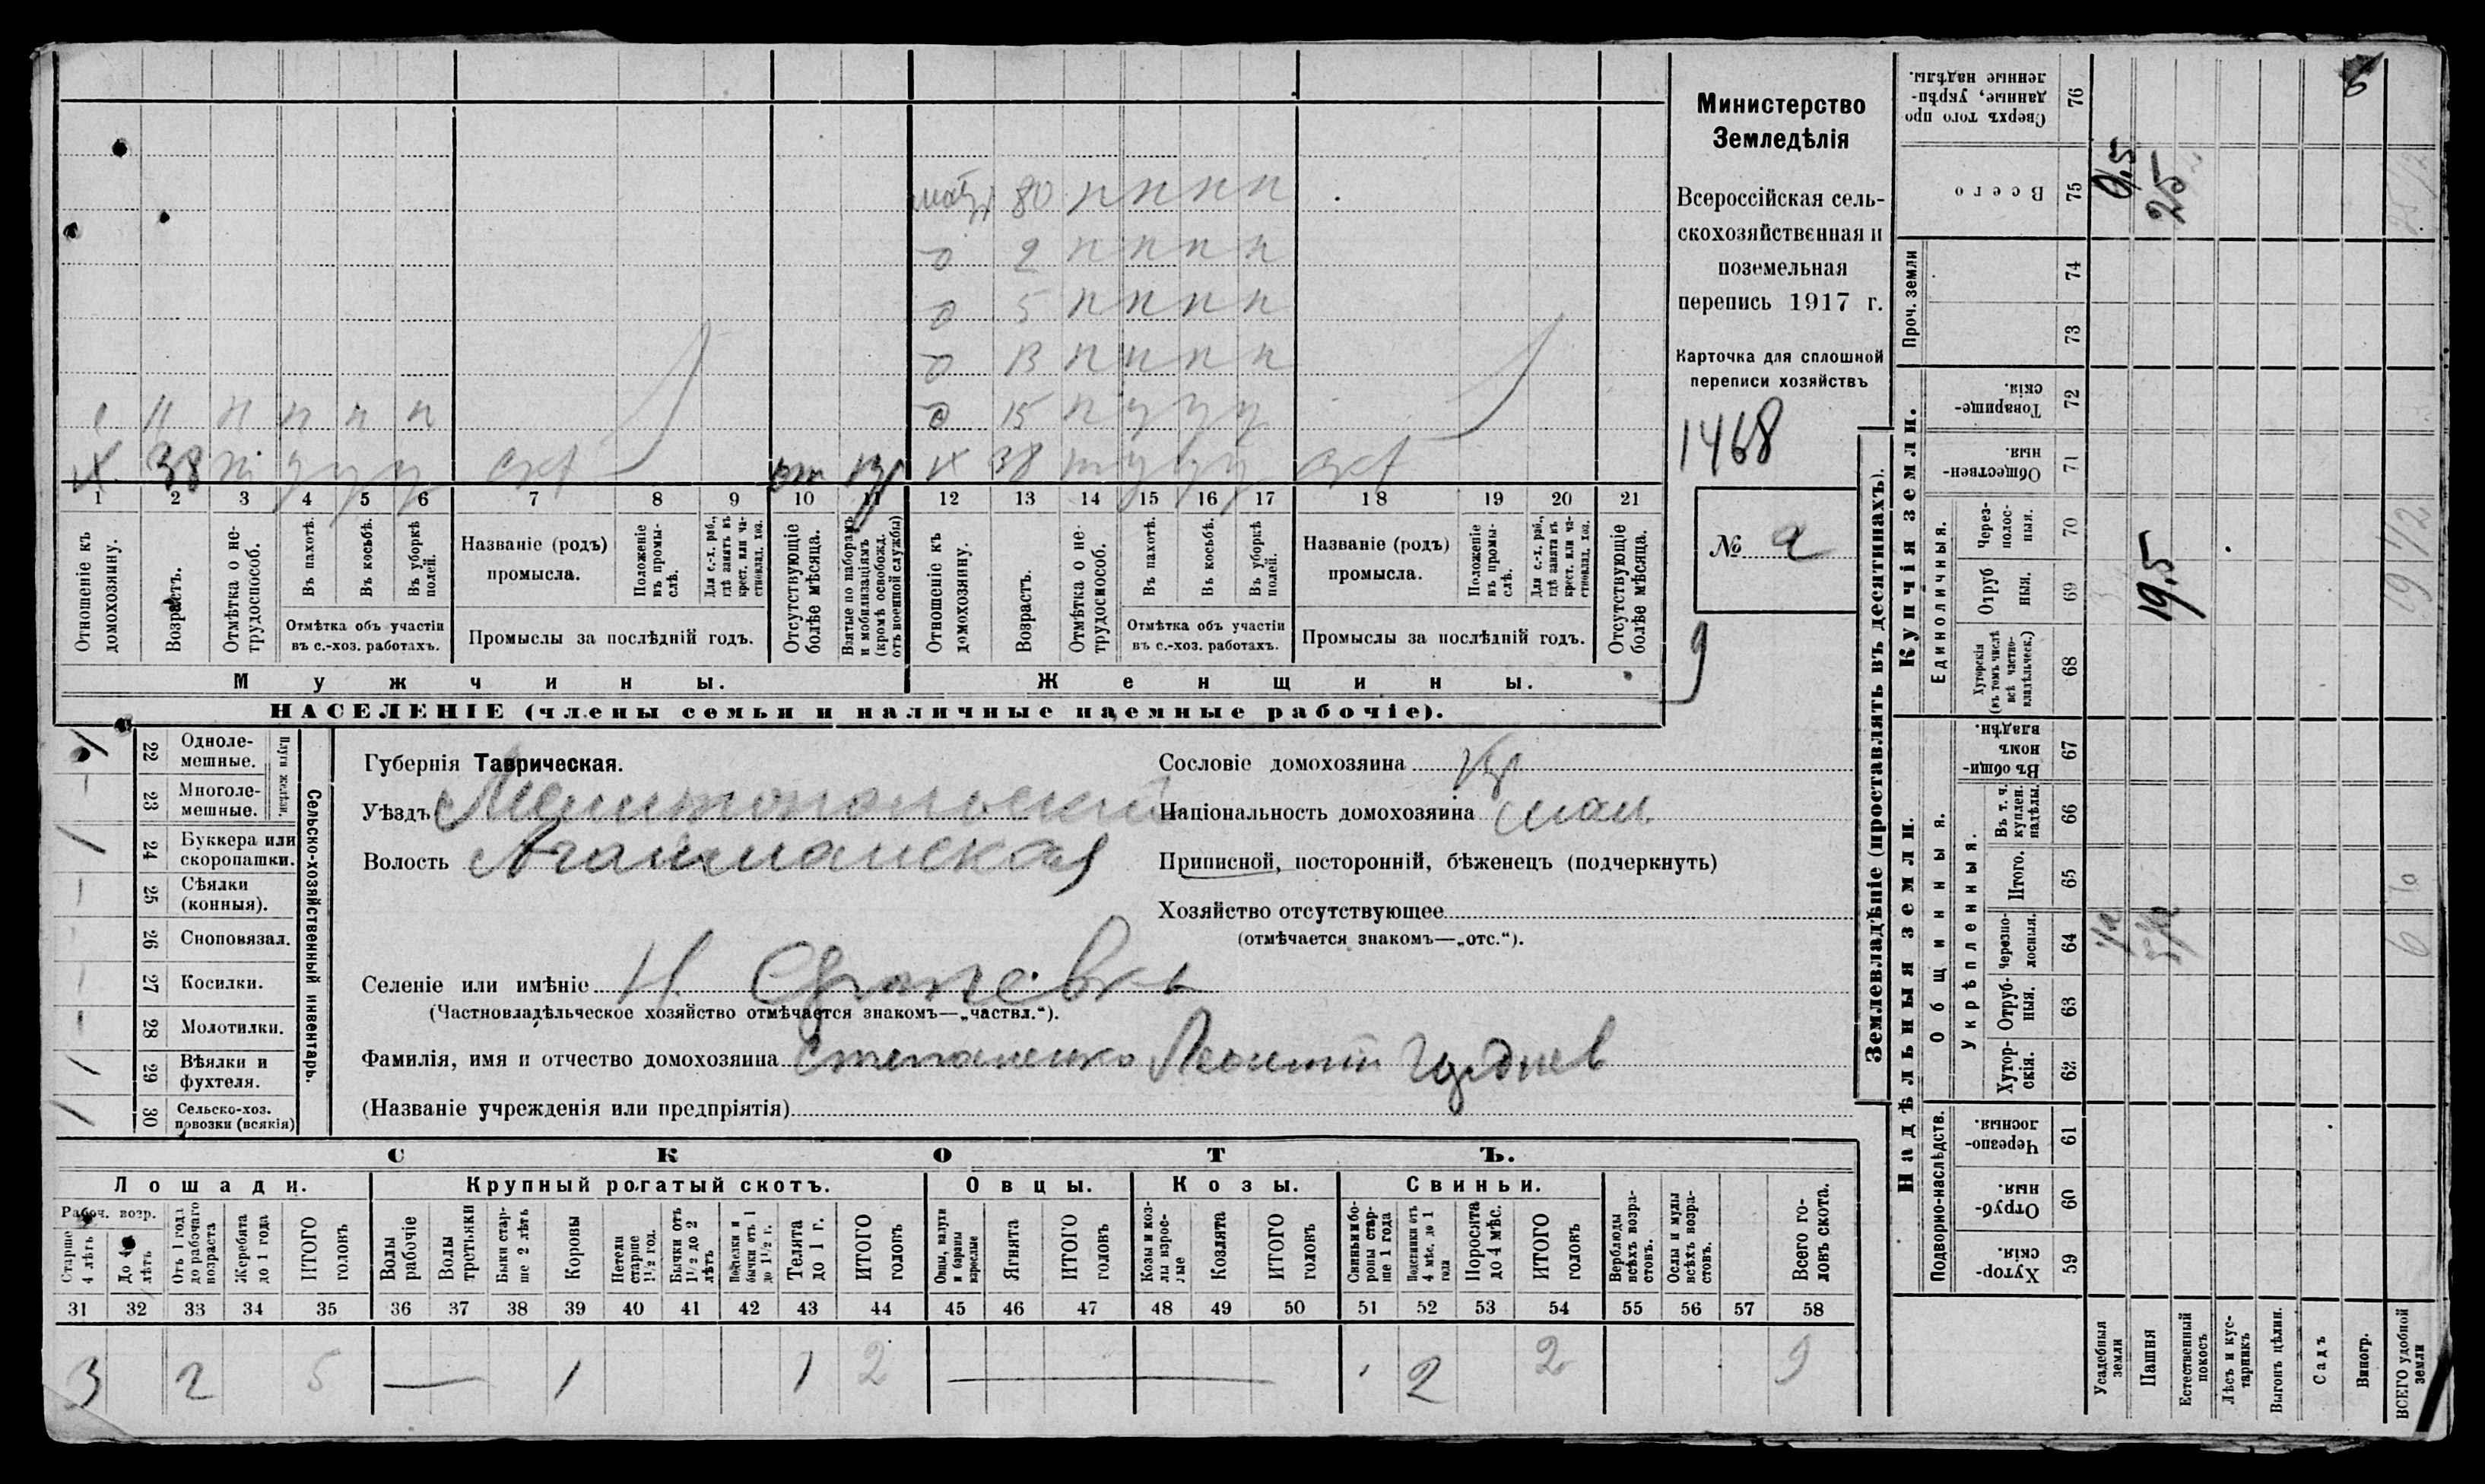 мать 80 п п п п
о 2 п п п п
о 5 п п п п
о 13 п п п п
с 11 п п п п
о 15 п у у у
х 38 т у у у
х 38 у у у
1 2 3 4 5 6 7 8 9 10 11 12 13 14 15 16 17 18 19 20 21
Отношеніе къ домохозяину.
Возрастъ.
Отмѣтка о не-
трудоспособ.
Въ пахотѣ.
Въ косьбѣ.
Въ уборкѣ полей.
Отмѣтка объ участіи
въ с.-хоз. работахъ.
Названіе (родъ)
промысла.
Положеніе въ промы-
слѣ.
Для с.-х. раб.,
гдѣ занятъ въ
крест. или ча-
стновлад. хоз.
Промыслы за послѣдній годъ.
Отсутствующіе
болѣе мѣсяца.
Взятые по наборамъ
и мобилизаціямъ
(кромѣ освобожд.
отъ военной службы)
Отношеніе къ
домохозяину.
Возрастъ.
Отмѣтка о не-
трудоспособ.
Въ пахотѣ.
Въ косьбѣ.
Въ уборкѣ
полей.
Отмѣтка объ участіи
въ с.-хоз. работахъ.
Названіе (родъ)
промысла.
Положеніе
въ промы-
слѣ.
Для с.-х. раб.,
гдѣ занята въ
крест. или ча-
стновлад. хоз.
Промыслы за послѣдній годъ.
Отсутствующіе
болѣе мѣсяца.
Мужчины.
Женщины.
НАСЕЛЕНІЕ (члены семьи и наличные наемные рабочіе).
Министерство
Земледѣлія
Всероссійская сель-
скохозяйственная и
поземельная
перепись 1917 г.
Карточка для сплошной
переписи хозяйствъ
1468
№
9
22 Одноле-
мешные.
23 Многоле-
мешные.
Плуги желѣзн.
24 Буккера или
скоропашки.
25 Сѣялки
(конныя).
26 Сноповязал.
27 Косилки.
28 Молотилки.
29 Вѣялки и
фухтеля.
30 Сельско-хоз.
повозки (всякія)
Сельско-хозяйственный инвентарь.
Губернія Таврическая.
Уѣздъ Мелитопольский
Волость Агайманская
Селеніе или имѣніе Н.
(Частновладѣльческое хозяйство отмѣчается знакомъ—„частвл.“).
Фамилія, имя и отчество домохозяина Степаненко Леонтій
(Названіе учрежденія или предпріятія)
Сословіе домохозяина кр
Національность домохозяина мал
Приписной, посторонній, бѣженецъ (подчеркнуть)
Хозяйство отсутствующее
(отмѣчается знакомъ—„отс.“).
СКОТЪ.
Лошади.
Крупный рогатый скотъ.
Овцы.
Козы.
Свиньи.
Рабоч. возр.
Старше
4 лѣтъ
До 4
лѣтъ
Отъ 1 года
до рабочаго
возраста
Жеребята
до 1 года
ИТОГО
головъ
Волы
рабочіе
Волы
третьяки
Быки стар-
ше 2 лѣтъ
Коровы
Нетели
старше
1½ год.
Бычки отъ
1½ до 2
лѣтъ
Телки и
бычки отъ 1
до 1½ г.
Телята
до 1 г.
ИТОГО
головъ
Овцы, валухи
и бараны
взрослые
Ягнята
ИТОГО
головъ
Козы и коз-
лы взрос-
лые
Козлята
ИТОГО
головъ
Свиньи и бо-
ровы стар-
ше 1 года
Подсвинки отъ
4 мѣс. до 1
года
Поросята
до 4 мѣс.
ИТОГО
головъ
Верблюды
всѣхъ возра-
стовъ.
Ослы и мулы
всѣхъ возра-
стовъ.
Всего го-
ловъ скота.
31 32 33 34 35 36 37 38 39 40 41 42 43 44 45 46 47 48 49 50 51 52 53 54 55 56 57 58
3 2 5 — 1 1 2 — 2 2 9
Землевладѣніе (проставлять въ десятинахъ).
Купчія земли.
Надѣльныя земли.
Сверхъ того про
данные, укрѣп-
ленные надѣлы.
76
Всего
75
Проч. земли
74
73
Товарище-
скія.
72
Обществен-
ныя.
71
Единоличныя.
Через-
полос-
ныя.
70
Отруб
ныя.
69
Хуторскія
(въ томъ числѣ
всѣ частно-
владѣльческ.)
68
Общинныя.
Въ общи-
номъ
владѣн.
67
Укрѣпленныя.
Въ т. ч.
куплен.
надѣлы.
66
Итого.
65
Черезпо-
лосныя.
64
Отруб-
ныя.
63
Хутор-
скія.
62
Подворно-наслѣдств.
Черезпо-
лосныя.
61
Отруб-
ныя.
60
Хутор-
скія.
59
Усадебныя
земли
Пашня
Естественный
покосъ
Лѣсъ и кус-
тарникъ
Выгонъ цѣлин.
Садъ
Виногр.
ВСЕГО удобной
земли
0,5
25
19,5
1/2
5 1/2
19 1/2
6
6